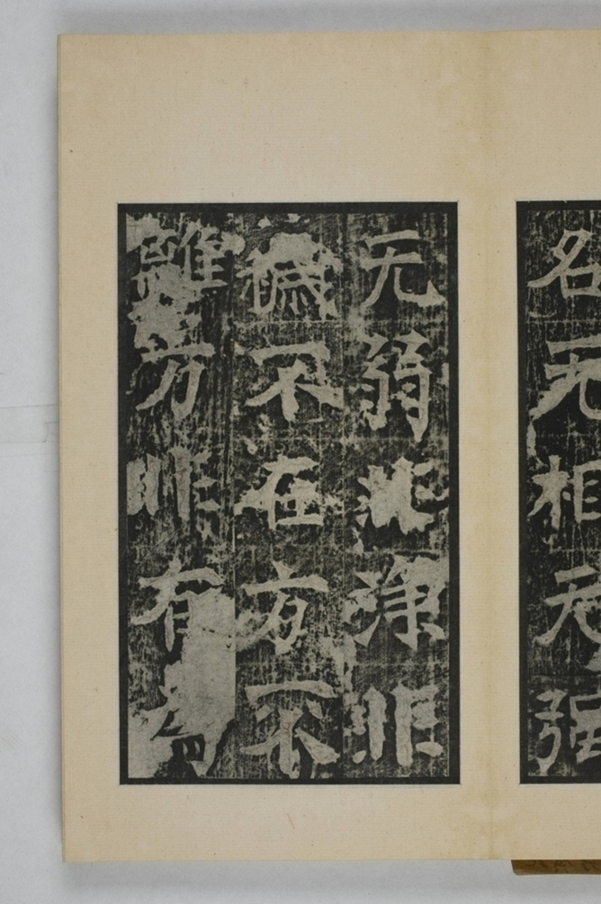 名无相无强
无弱非淨非
穢不在方不
離方非有為